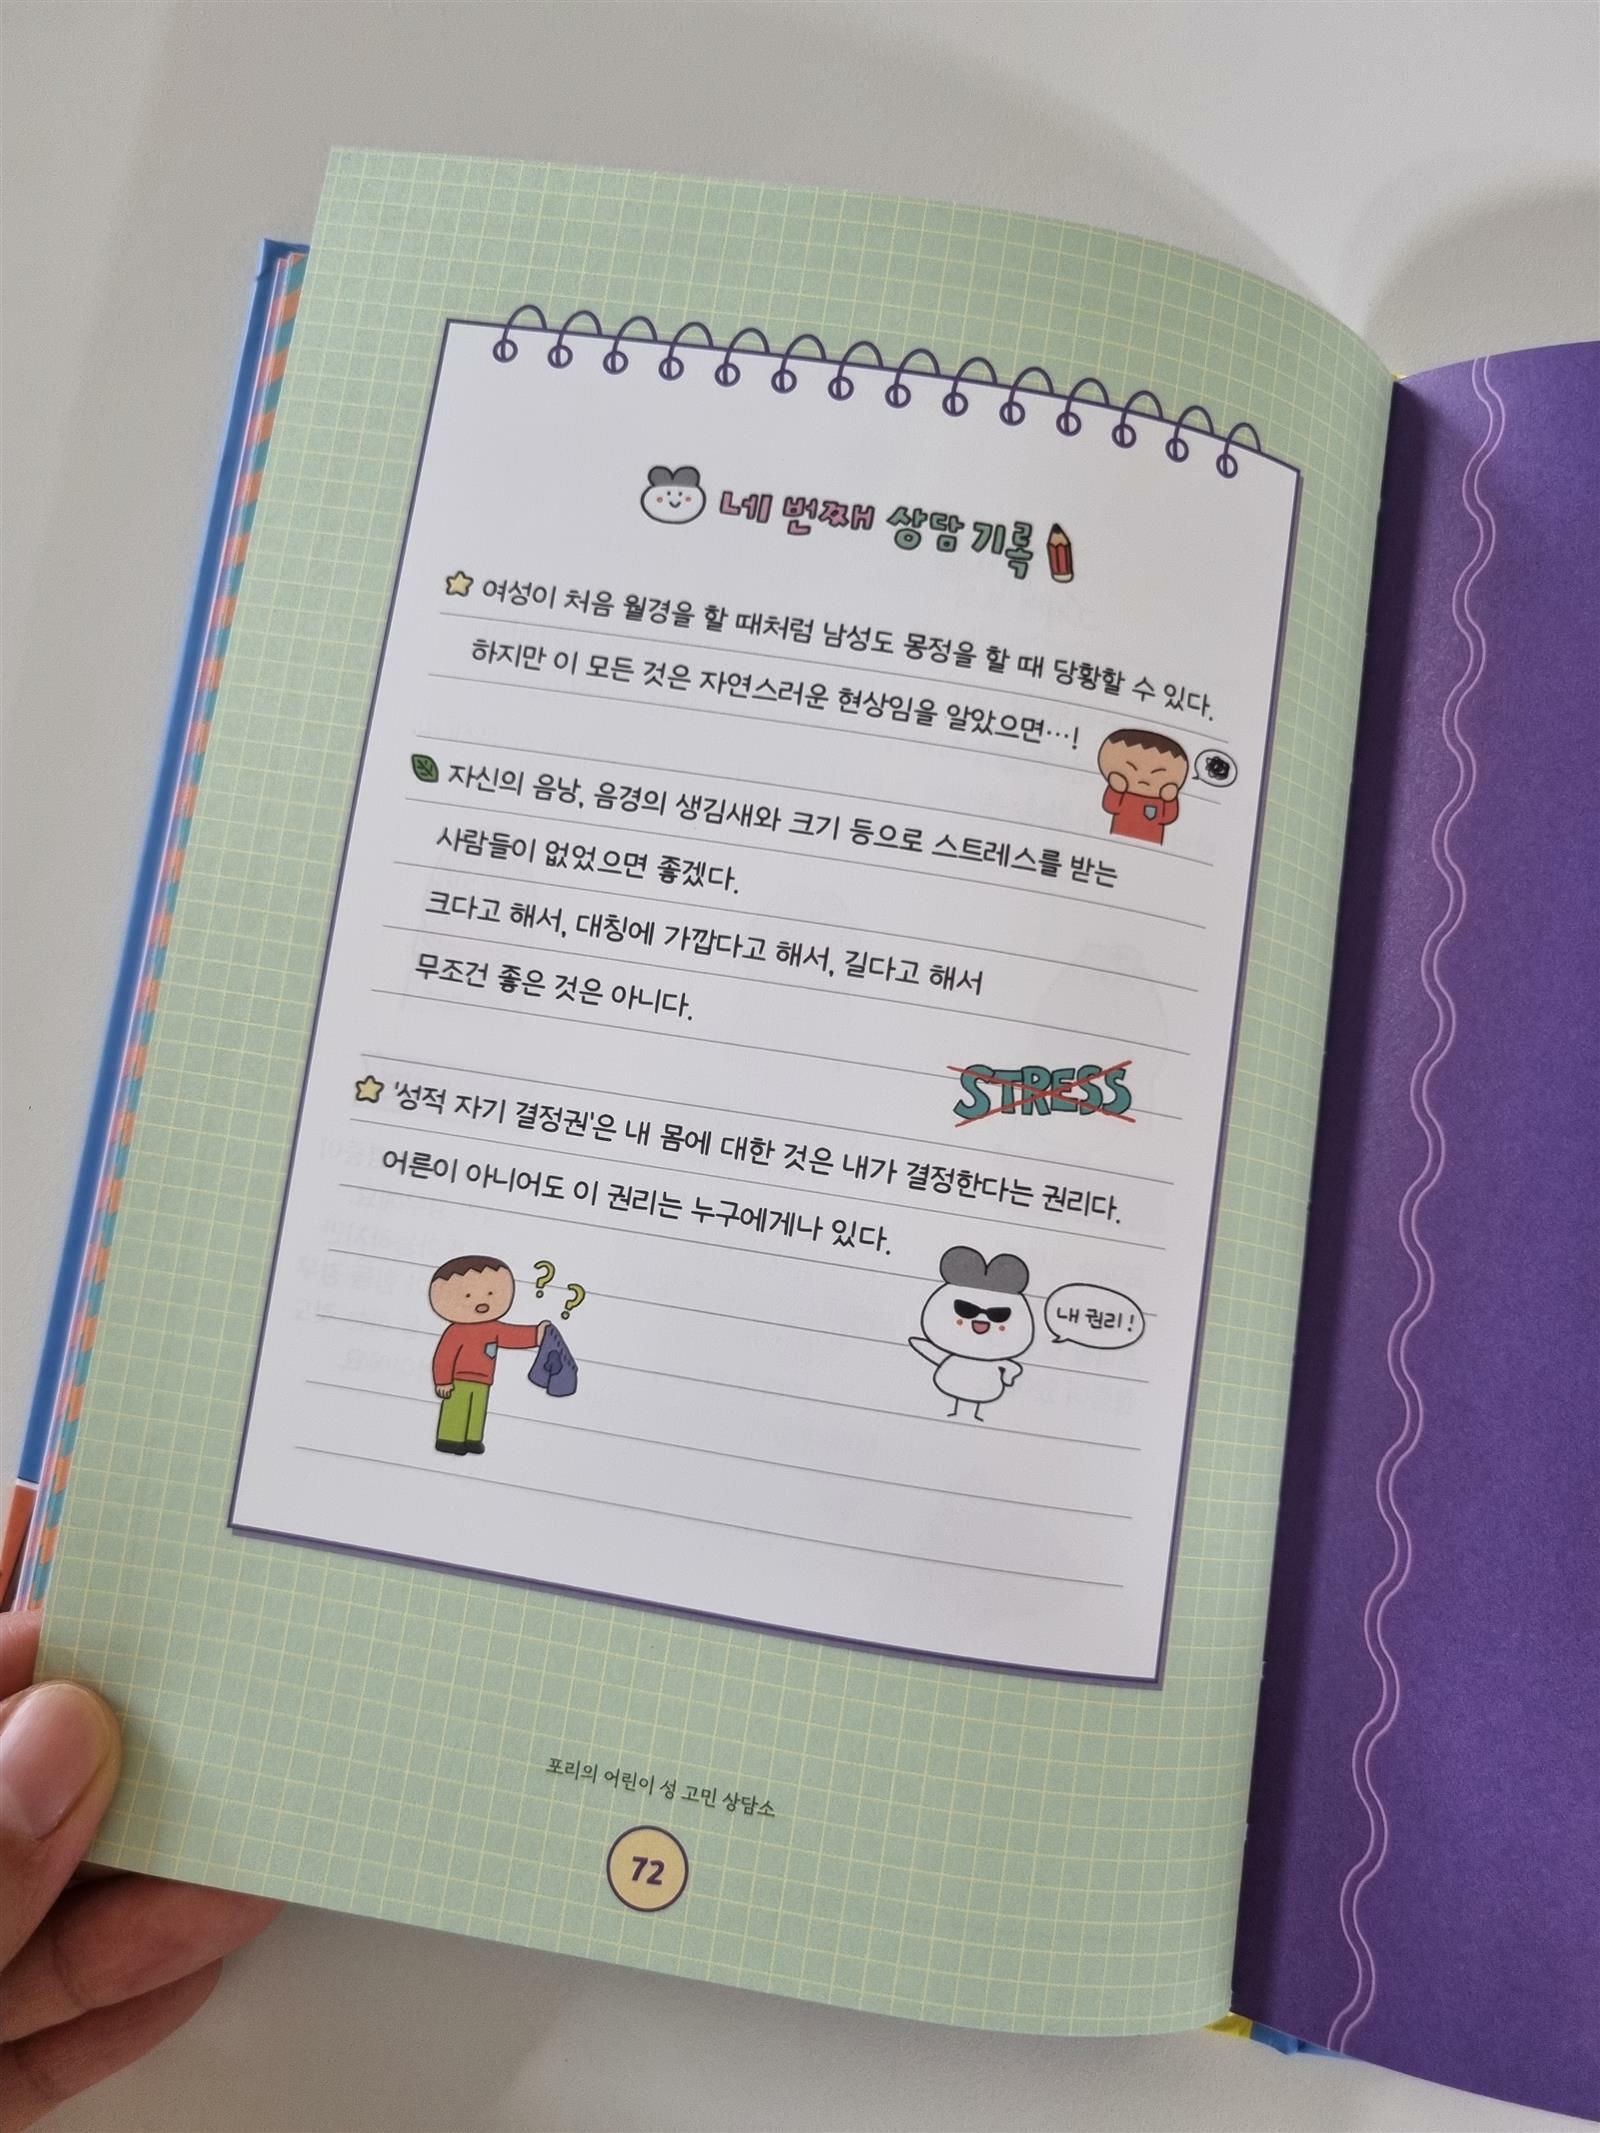 네 번째 상담 기록
여성이 처음 월경을 할 때처럼 남성도 몽정을 할 때 당황할 수 있다.
하지만 이 모든 것은 자연스러운 현상임을 알았으면…!
자신의 음낭, 음경의 생김새와 크기 등으로 스트레스를 받는
사람들이 없었으면 좋겠다.
크다고 해서, 대칭에 가깝다고 해서, 길다고 해서
무조건 좋은 것은 아니다.
STRESS
'성적 자기 결정권'은 내 몸에 대한 것은 내가 결정한다는 권리다.
어른이 아니어도 이 권리는 누구에게나 있다.
? ?
내 권리!
포리의 어린이 성 고민 상담소
72